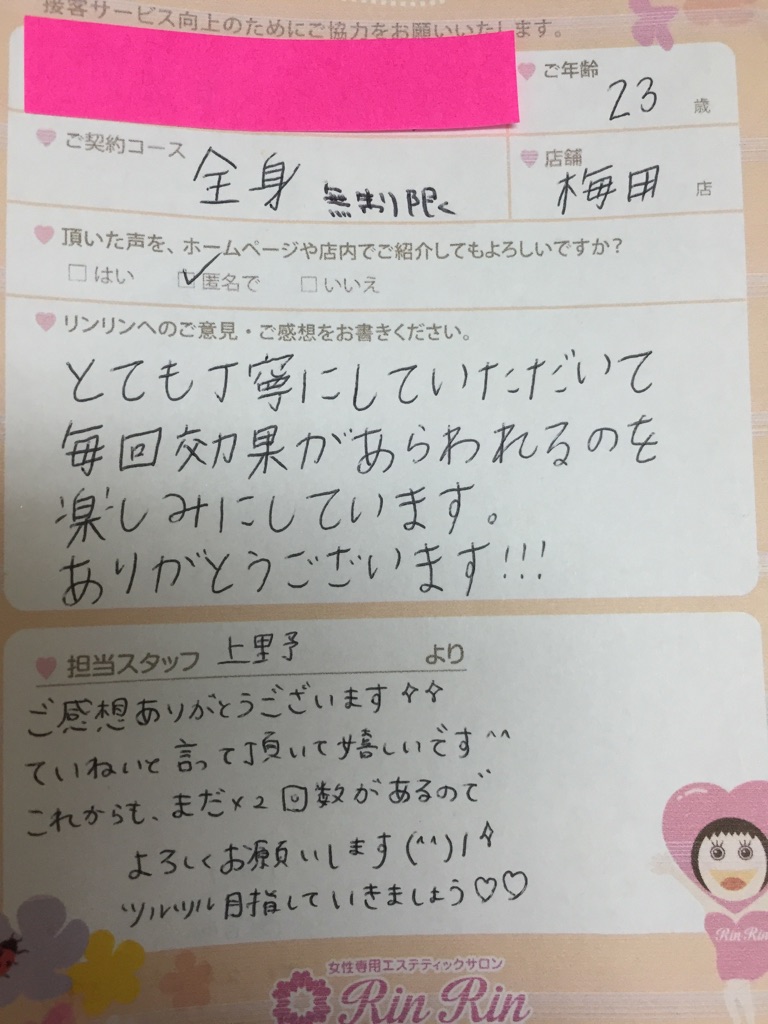 接客サービス向上のためにご協力をお願いいたします。
ご年齢
23 歳
ご契約コース
全身 無制限
店舗
梅田 店
頂いた声を、ホームページや店内でご紹介してもよろしいですか?
はい 匿名で いいえ
リンリンへのご意見・ご感想をお書きください。
とても丁寧にしていただいて
毎回効果があらわれるのを
楽しみにしています。
ありがとうございます!!!
担当スタッフ 上里予 より
ご感想ありがとうございます
ていねいと言って頂いて嬉しいです^^
これからも、まだ××回数があるので
よろしくお願いします(^^)/
ツルツル目指していきましょう♡♡
Rin Rin
女性専用エステティックサロン
Rin Rin